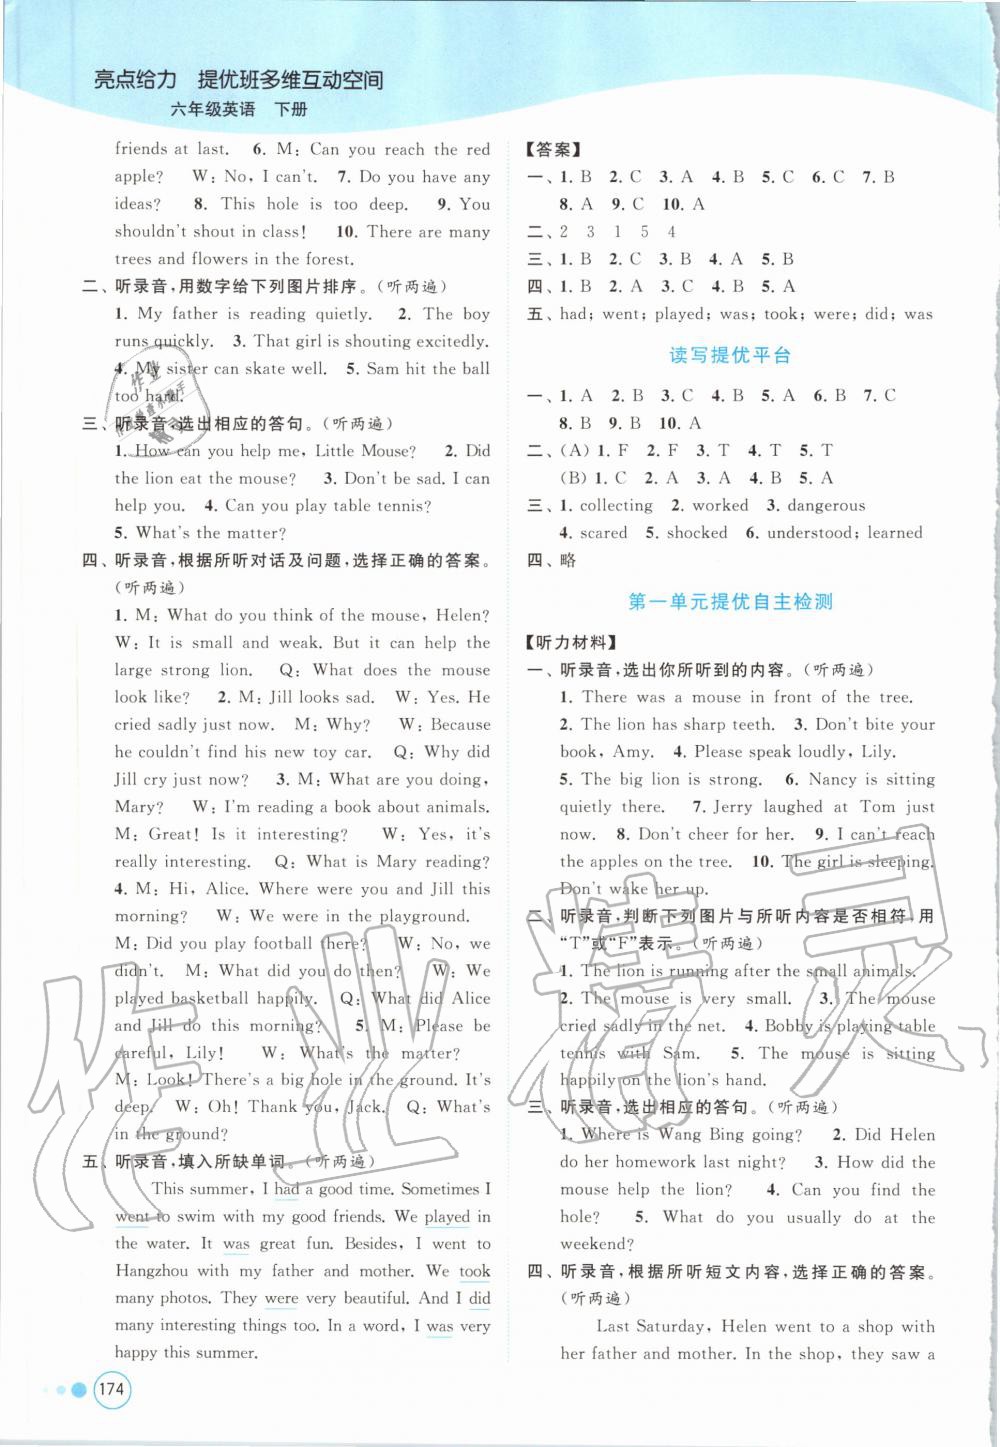 亮点给力 提优班多维互动空间
六年级英语 下册
friends at last. 6. M: Can you reach the red
apple? W: No, I can't. 7. Do you have any
ideas? 8. This hole is too deep. 9. You
shouldn't shout in class! 10. There are many
trees and flowers in the forest.
二、听录音,用数字给下列图片排序。(听两遍)
1. My father is reading quietly. 2. The boy
runs quickly. 3. That girl is shouting excitedly.
4. My sister can skate well. 5. Sam hit the ball
too hard.
三、听录音,选出相应的答句。(听两遍)
1. How can you help me, Little Mouse? 2. Did
the lion eat the mouse? 3. Don't be sad. I can
help you. 4. Can you play table tennis?
5. What's the matter?
四、听录音,根据所听对话及问题,选择正确的答案。
(听两遍)
1. M: What do you think of the mouse, Helen?
W: It is small and weak. But it can help the
large strong lion. Q: What does the mouse
look like? 2. M: Jill looks sad. W: Yes. He
cried sadly just now. M: Why? W: Because
he couldn't find his new toy car. Q: Why did
Jill cry just now? 3. M: What are you doing,
Mary? W: I'm reading a book about animals.
M: Great! Is it interesting? W: Yes, it's
really interesting. Q: What is Mary reading?
4. M: Hi, Alice. Where were you and Jill this
morning? W: We were in the playground.
M: Did you play football there? W: No, we
didn't. M: What did you do then? W: We
played basketball happily. Q: What did Alice
and Jill do this morning? 5. M: Please be
careful, Lily! W: What's the matter?
M: Look! There's a big hole in the ground. It's
deep. W: Oh! Thank you, Jack. Q: What's
in the ground?
五、听录音,填入所缺单词。(听两遍)
This summer, I had a good time. Sometimes I
went to swim with my good friends. We played in
the water. It was great fun. Besides, I went to
Hangzhou with my father and mother. We took
many photos. They were very beautiful. And I did
many interesting things too. In a word, I was very
happy this summer.
174
【答案】
一、1. B 2. C 3. A 4. B 5. C 6. C 7. B
8. A 9. C 10. A
二、2 3 1 5 4
三、1. B 2. C 3. B 4. A 5. B
四、1. B 2. A 3. C 4. B 5. A
五、had; went; played; was; took; were; did; was
读写提优平台
一、1. A 2. B 3. C 4. C 5. A 6. B 7. C
8. B 9. B 10. A
二、(A) 1. F 2. F 3. T 4. T 5. T
(B) 1. C 2. A 3. A 4. B 5. A
三、1. collecting 2. worked 3. dangerous
4. scared 5. shocked 6. understood; learned
四、略
第一单元提优自主检测
【听力材料】
一、听录音,选出你所听到的内容。(听两遍)
1. There was a mouse in front of the tree.
2. The lion has sharp teeth. 3. Don't bite your
book, Amy. 4. Please speak loudly, Lily.
5. The big lion is strong. 6. Nancy is sitting
quietly there. 7. Jerry laughed at Tom just
now. 8. Don't cheer for her. 9. I can't reach
the apples on the tree. 10. The girl is sleeping.
Don't wake her up.
二、听录音,判断下列图片与所听内容是否相符,用
“T”或“F”表示。(听两遍)
1. The lion is running after the small animals.
2. The mouse is very small. 3. The mouse
cried sadly in the net. 4. Bobby is playing table
tennis with Sam. 5. The mouse is sitting
happily on the lion's hand.
三、听录音,选出相应的答句。(听两遍)
1. Where is Wang Bing going? 2. Did Helen
do her homework last night? 3. How did the
mouse help the lion? 4. Can you find the
hole? 5. What do you usually do at the
weekend?
四、听录音,根据所听短文内容,选择正确的答案。
(听两遍)
Last Saturday, Helen went to a shop with
her father and mother. In the shop, they saw a
作业精灵